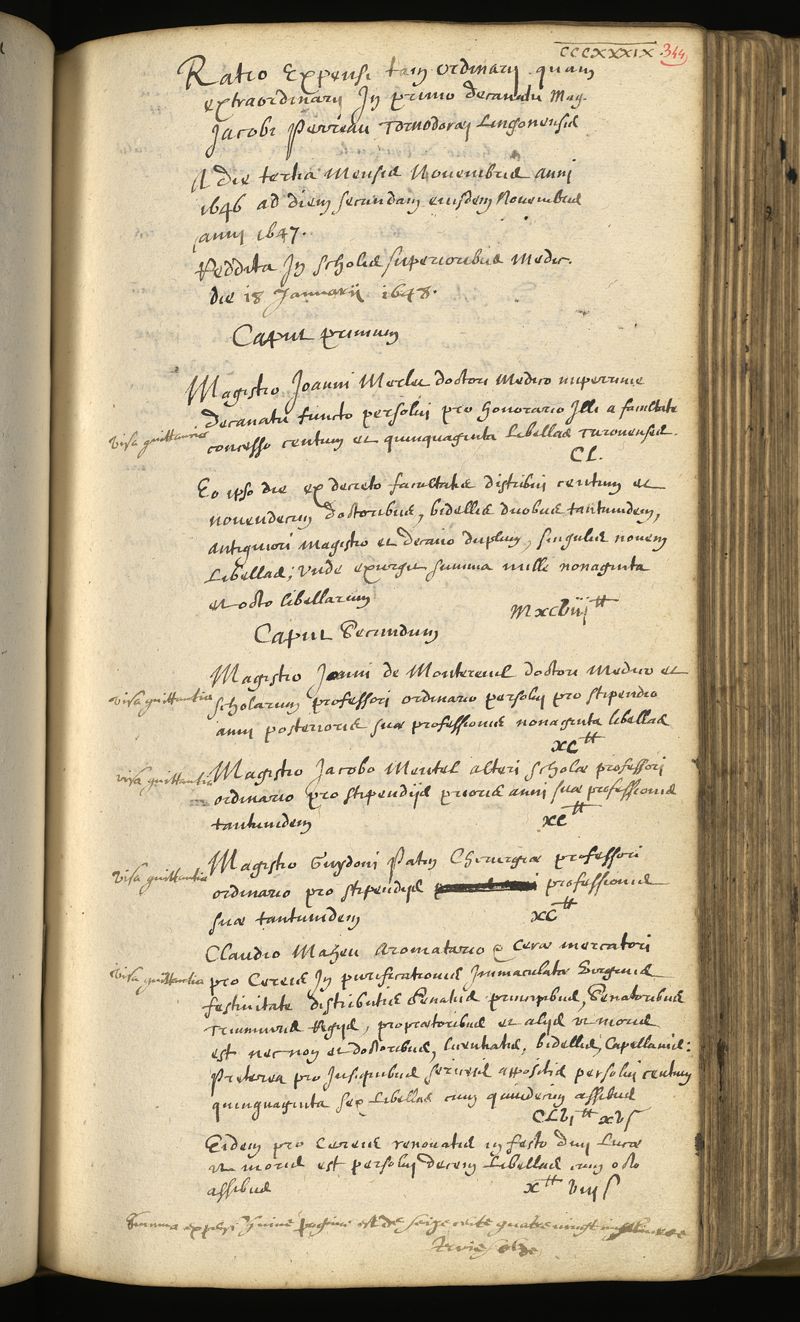 CCCXXXIX 344
Ratio Expensi tam ordinarij quam
extraordinarij In primo decanatu Mag.
Jacobi Perreau Tornodoræi Lingonensis
A die tertia Mensis Novembris anni
1646 ad diem secundam eiusdem Novembris
anni 1647.
Reddita In Scholis superioribus Medic.
die 18 Januarij 1648.
Caput primum
Magistro Joanni Merlet doctori Medico nuperrime
decanatu functo persolui pro honorario Illi a facultate
visa quittancia
concesso centum et quinquaginta Libellas Turonenses.
CL.
Eo ipso die ex decreto facultatis distribui centum et
novendecim doctoribus, bidellis duobus tantumdem,
antiquiori Magistro et decano duplum, singulis novem
Libellas; Unde exurgit summa mille nonaginta
et octo libellarum
MXCViij ₶
Caput Secundum
Magistro Joanni de Montereuil doctori Medico et
visa quittantia
scholarum professori ordinario persolui pro stipendio
anni posterioris suæ professionis nonaginta libellas
XC ₶
visa quittantia
Magistro Jacobo Mentel alteri scholæ professori
ordinario pro stipendijs prioris anni suæ professionis
tantumdem XC ₶
Magistro Guydoni Patin Chirurgiæ professori
visa quittantia
ordinario pro stipendijs professionis
suæ tantumdem XC ₶
Claudio Maheu Aromatario & Ceræ mercatori
visa quittantia
pro Cereis In purificationis Immaculatæ Virginis
festivitate distributis Senatus principibus, Senatoribus
Triumviris Regijs, proprætoribus et alijs ut moris
est nec non et doctoribus, licentiatis, bidellis, Capellanis:
Præterea pro Insignibus sericeis appositis persolui centum
quinquaginta sex Libellas cum quindecim assibus
CLVj ₶ xv ſ
Eidem pro Cereis renovatis in festo divi Lucæ
ut moris est persolui decem Libellas cum octo
assibus X ₶ viij ſ
Summa expensi huius paginæ est de seize cents quatre vingt
trois solz